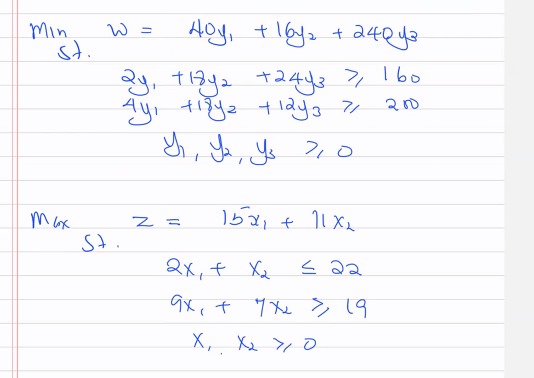 Min W = 40y₁ + 16y₂ + 240y₃
St.
2y₁ + 18y₂ + 24y₃ ≥ 160
4y₁ + 18y₂ + 12y₃ ≥ 200
y₁, y₂, y₃ ≥ 0
Max Z = 15x₁ + 11x₂
St.
2x₁ + x₂ ≤ 22
9x₁ + 7x₂ ≥ 19
x₁, x₂ ≥ 0